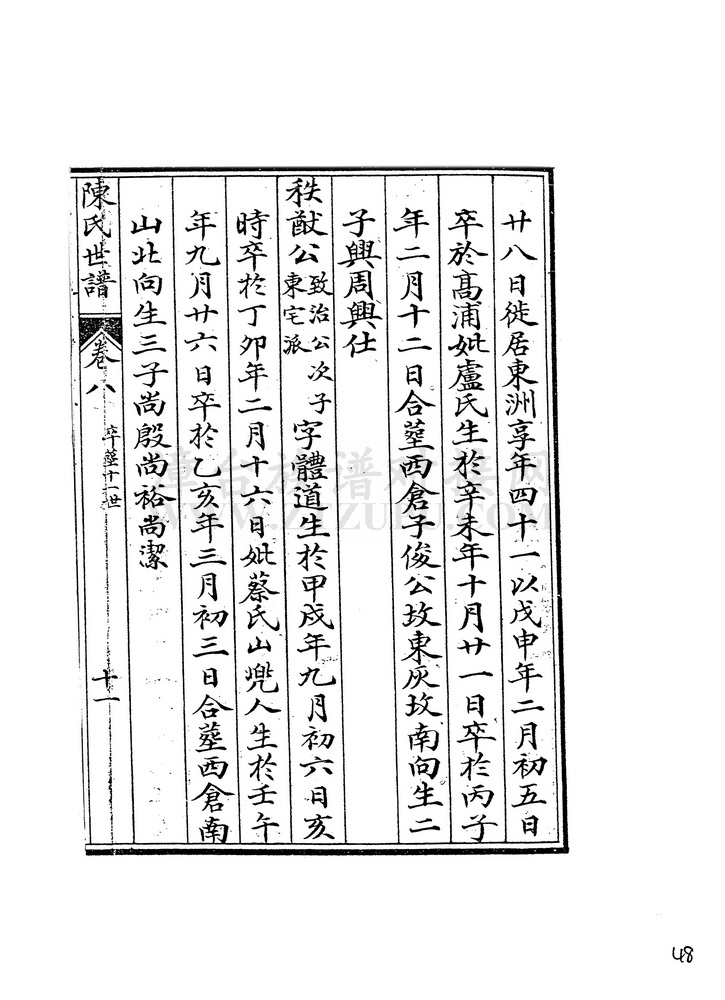 廿八日徙居東洲享年四十一以戊申年二月初五日
卒於高浦妣盧氏生於辛未年十月廿一日卒於丙子
年二月十二日合塟西倉子俊公坟東灰坟南向生二
子興周興仕
秩猷公致治公次子東宅派字體道生於甲戌年九月初六日亥
時卒於丁卯年二月十六日妣蔡氏山兠人生於壬午
年九月廿六日卒於乙亥年三月初三日合塟西倉南
山北向生三子尚殷尚裕尚潔
陳氏世譜 卷八 卒塟十一世 十一
48